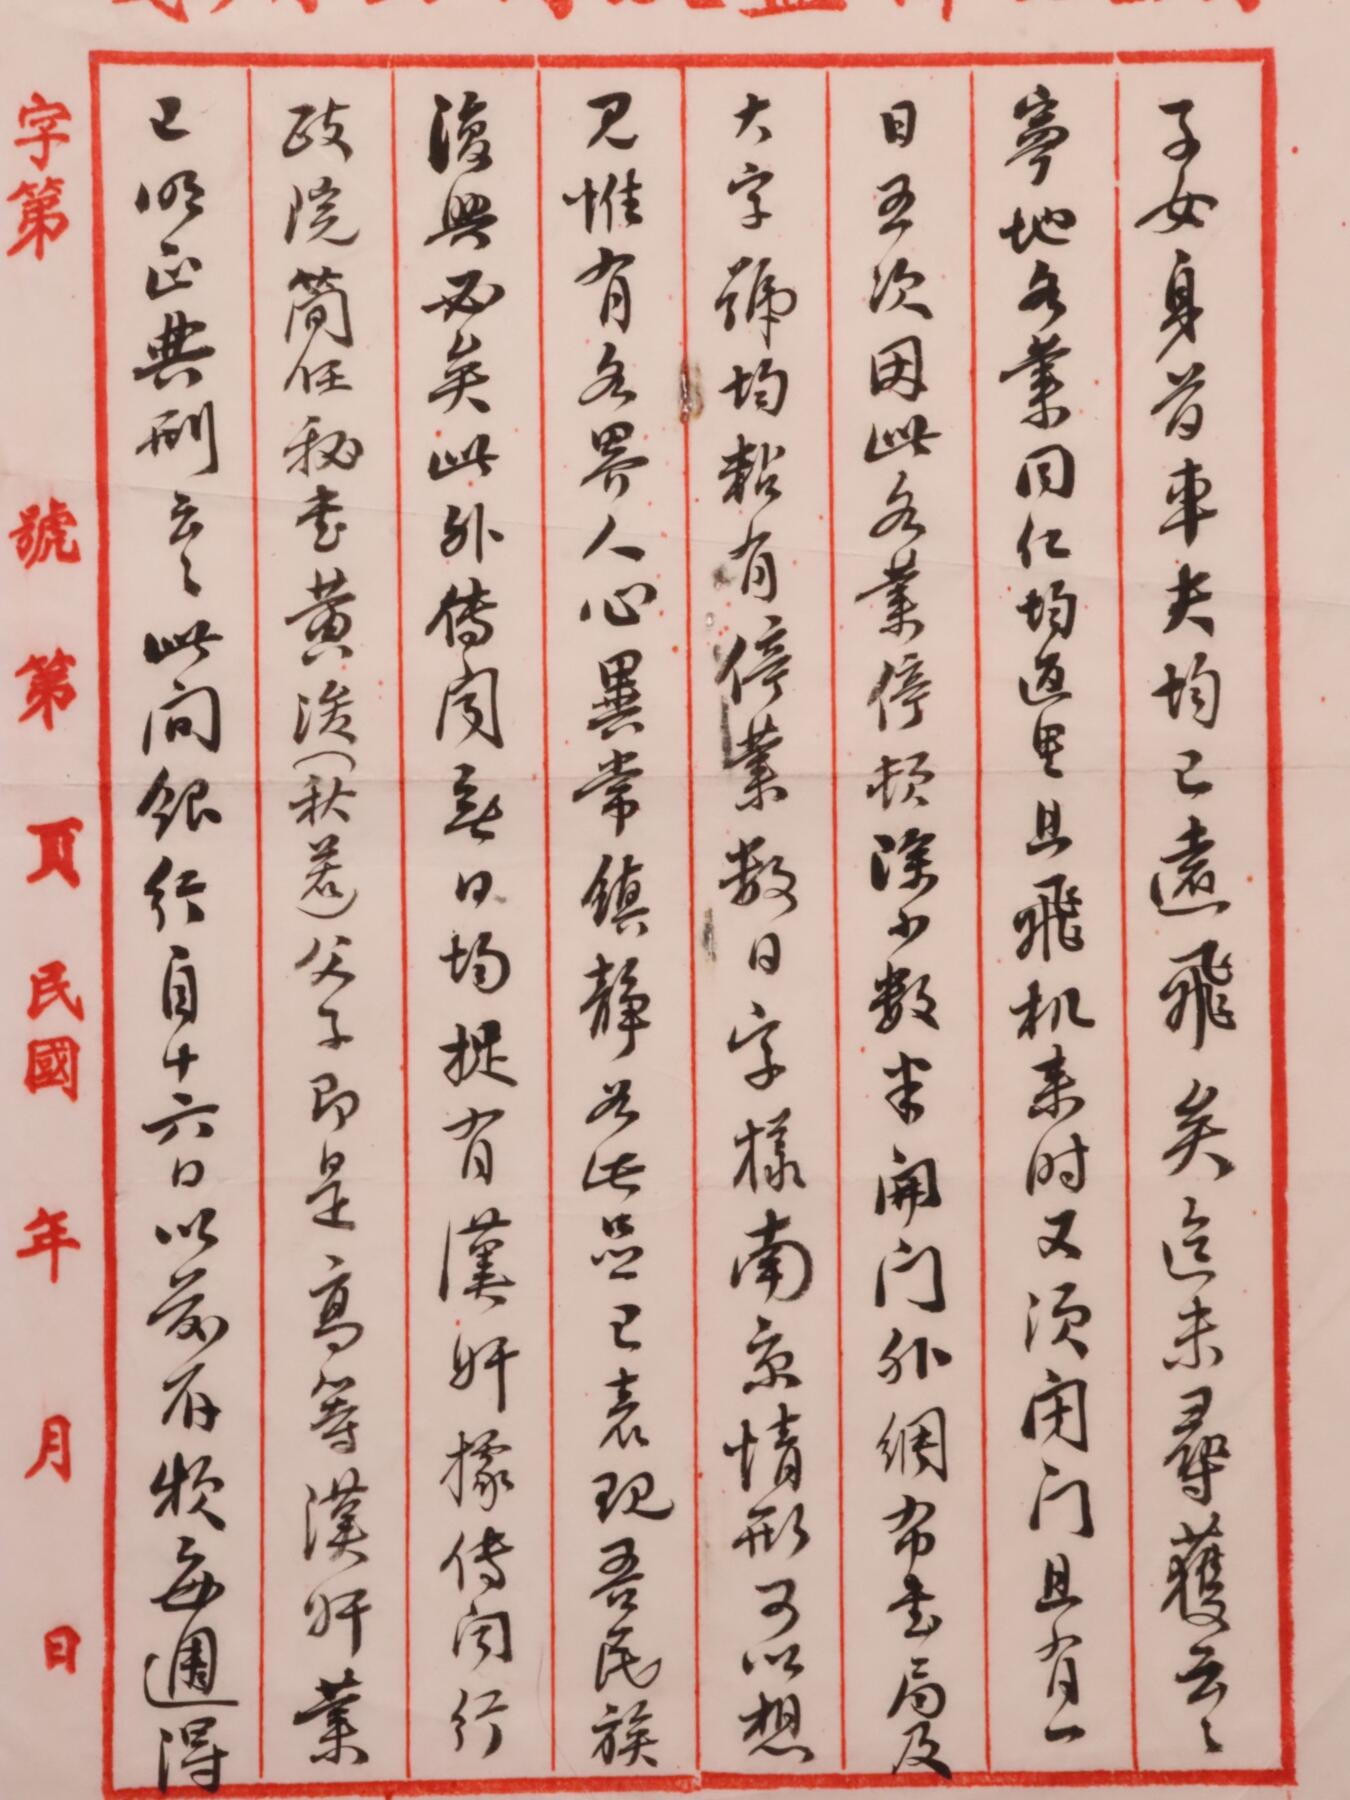 子女身首車夫均已遠飛矣迄未尋獲云云
寧地各業同仁均返里且飛机来时又须闭门且有一
日五次因此各業停頓除少數半開门外綢布书局及
大字號均粘有停業数日字樣南京情形可以想
见惟有各界人心異常鎮静如此足已表現吾民族
復興必矣此外传闻每日均捉有漢奸據传闻行
政院简任秘书黄濬(秋岳)父子即是高等漢奸業
已明正典刑云云此间銀行自十六日以前存款每週得
字第 號第 頁 民國 年 月 日